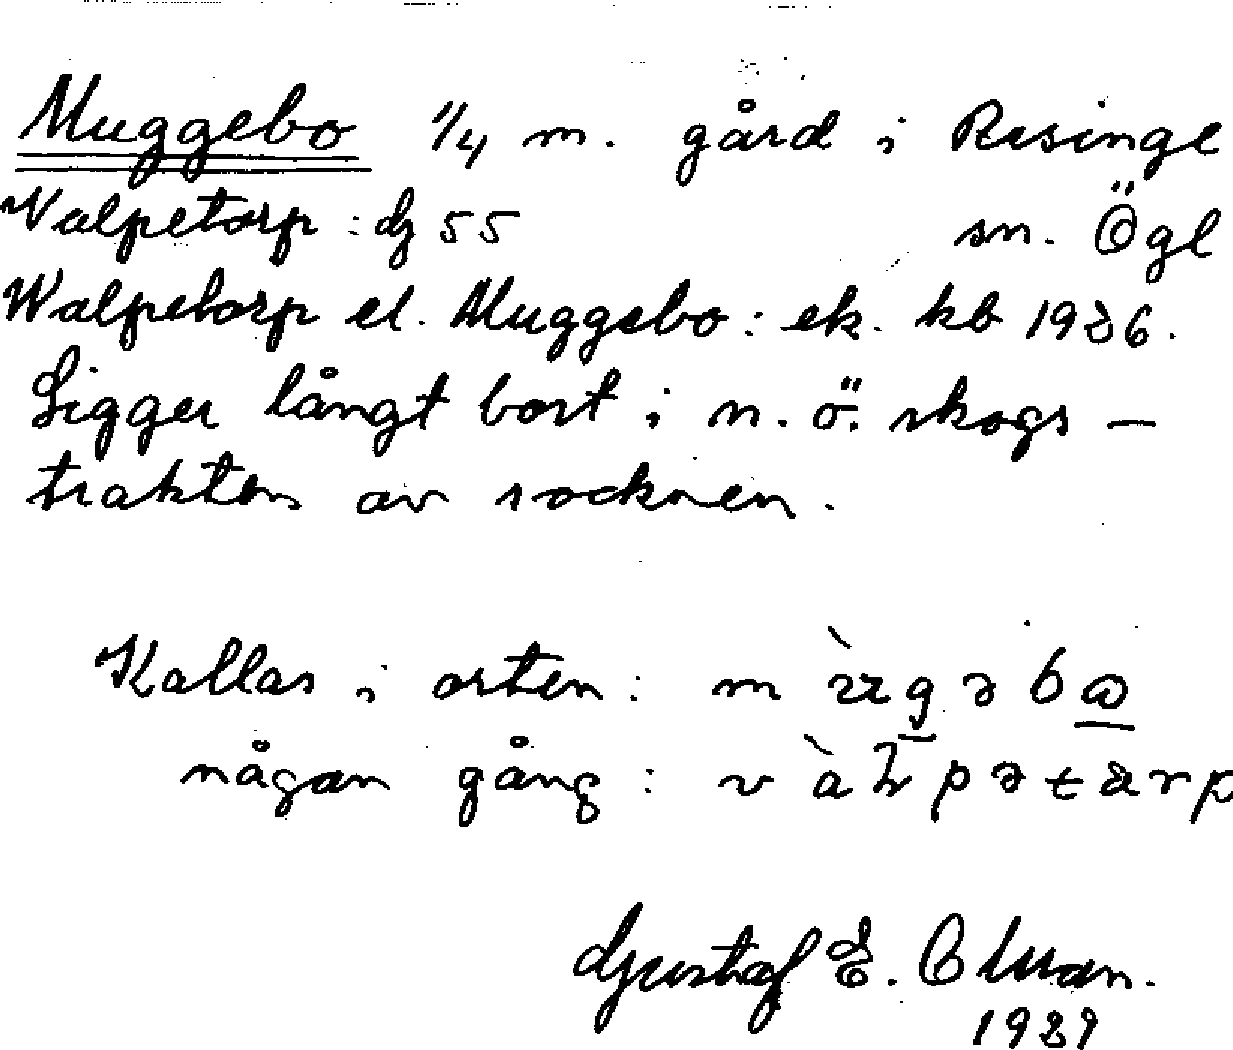 Muggebo 1/4 m. gård i Risinge
Valpetorp : dz 55 sn. Ögl
Walpetorp el. Muggebo : ek. kb 1936.
Ligger långt bort i n. ö. skogs-
trakten av socknen.
Kallas i orten :
någon gång :
Gustaf E.
1939